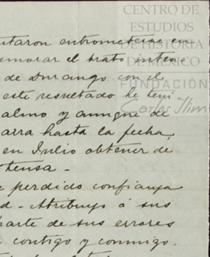 CENTRO DE
ESTUDIOS
DE HISTORIA
DE MÉXICO
FUNDACIÓN
Carlos Slim
entrometerse en
demorar el trato
de Durango con el
este resultado he
calmo y aunque de
arra hasta la fecha,
en Julio obtener de
perdido confianza
d. Atribuyo á sus
parte de sus errores
contigo y conmigo.